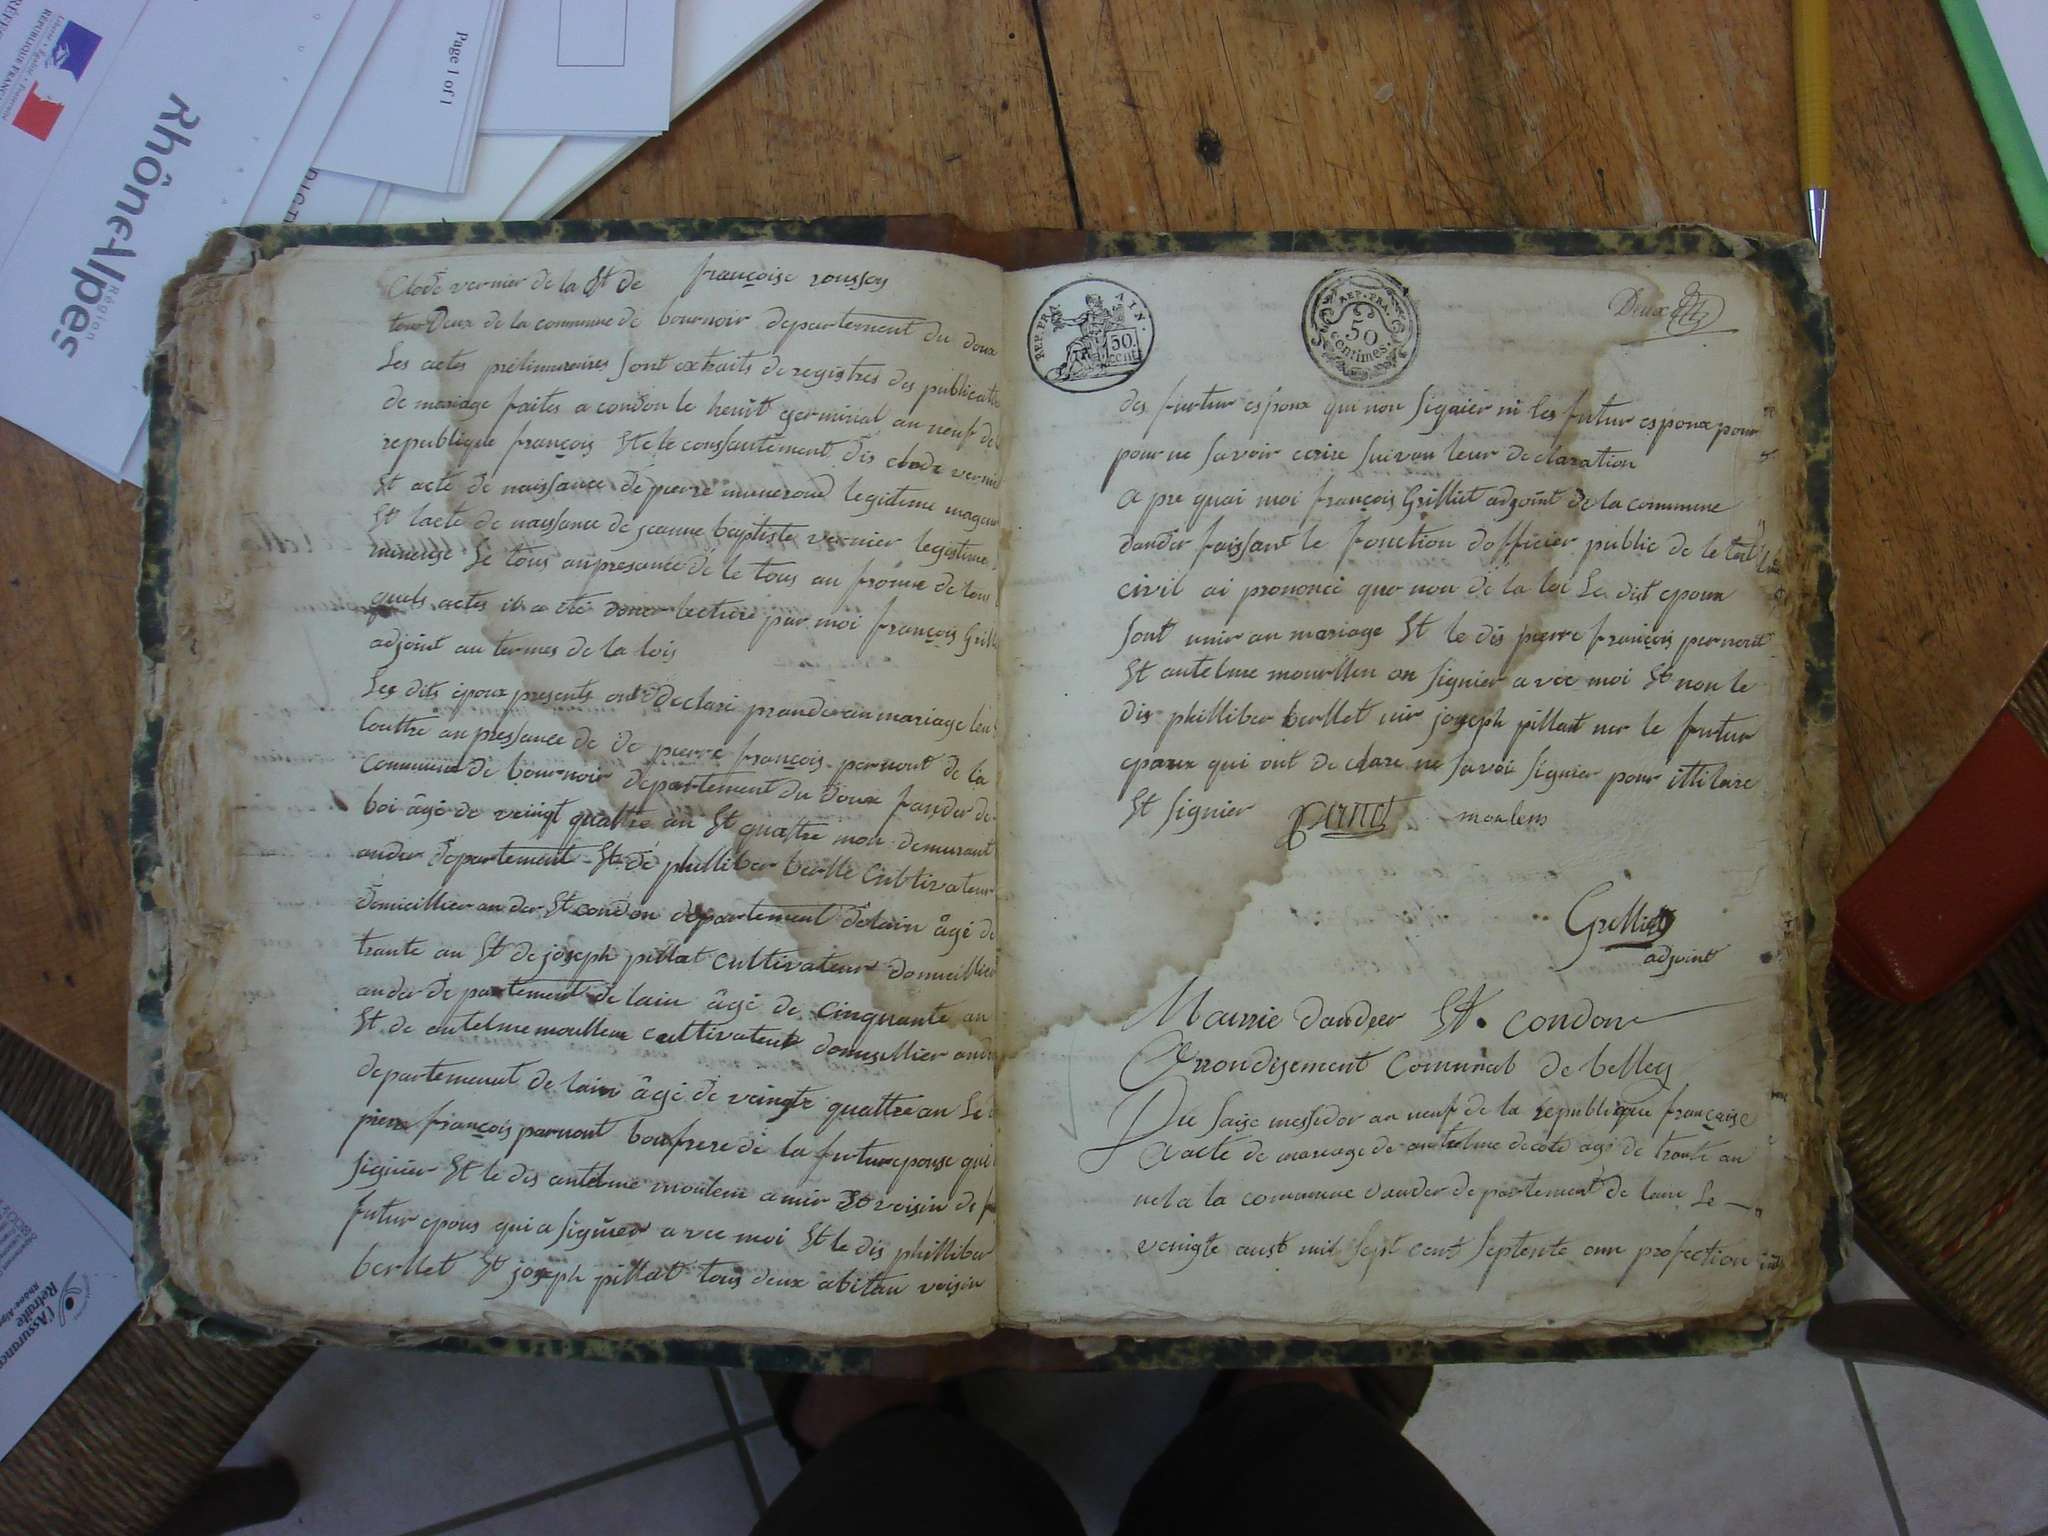 RÉPUBLIQUE FRANÇAISE
Rhône-Alpes
Région
Page 1 of 1
Clode vernier de la St de françoise roussey
tous Deux de la commune de bournoir departement du doux
Les actes préliminaires sont extraits de registres des publicatio
de mariage faites a condon le heuit germinal an neuf de l
republique françois St le consantement dis clode vernie
St acte de naissance de pierre muneroud legitime mageur
St lacte de naissance de jeanne baptiste vernier legitime
mineuse Le tous anpresance de le tous an frome de tous
quels actes il a été doner lecture par moi françois Grill
adjoint au termes de la lois
Les dits époux presents ont declaré prandre an mariage leun
Loutre an pressance de de pierre françois pernout de la
Commune de bournoir departement du doux fander de
boi âgé de veingt quattre an St quattre moi demurant
ander departement St de philliber berlle Cultivateur
domicillier ander St condon departement delain âgé de
trante an St de joseph pillat cultivateur domicillier
ander departement de lain âgé de cinquante an
St de antelme moulleu cultivateur domisillier ander
departement de lain âgé de veingte quattre an Le
pierre françois parnout boufrere de la futur epouse qui
signier St le dis antelme moulem amir voisin de
futur epous qui a signier avec moi St le dis philliber
berllet St joseph pillat tous deux abitau voisin
REP. FRA. AIN.
50. cent.
REP. FRA.
50
centimes.
Deux
des furtur espoux qui non signier ni les futur espoux pour
pour ne savoir ecrire suivan leur declaration
a pre quai moi françois Grilliet adjoint de la commune
dander faissant le fonction dofficier public de le tat
civil ai prononcé quo nou de la loi Le dist epoux
sont unir an mariage St le dis pierre françois pernout
St antelme moulleu on signier avec moi St non le
dis philliber berllet nir joseph pillat ner le futur
epoux qui ont de clare ne savoi signier pour
St signier parnot moulem
Grilliet
adjoint
Mairie dander St. condon
Arrondisement Comunal de belley
Du saise messidor an neuf de la republique française
acte de mareage de antelme decote agé de trante an
nela la commune dander departement de lain Le
veingte aust mil sept cent septente onn profection
l'Assurance
Retraite
Rhône-Alpes